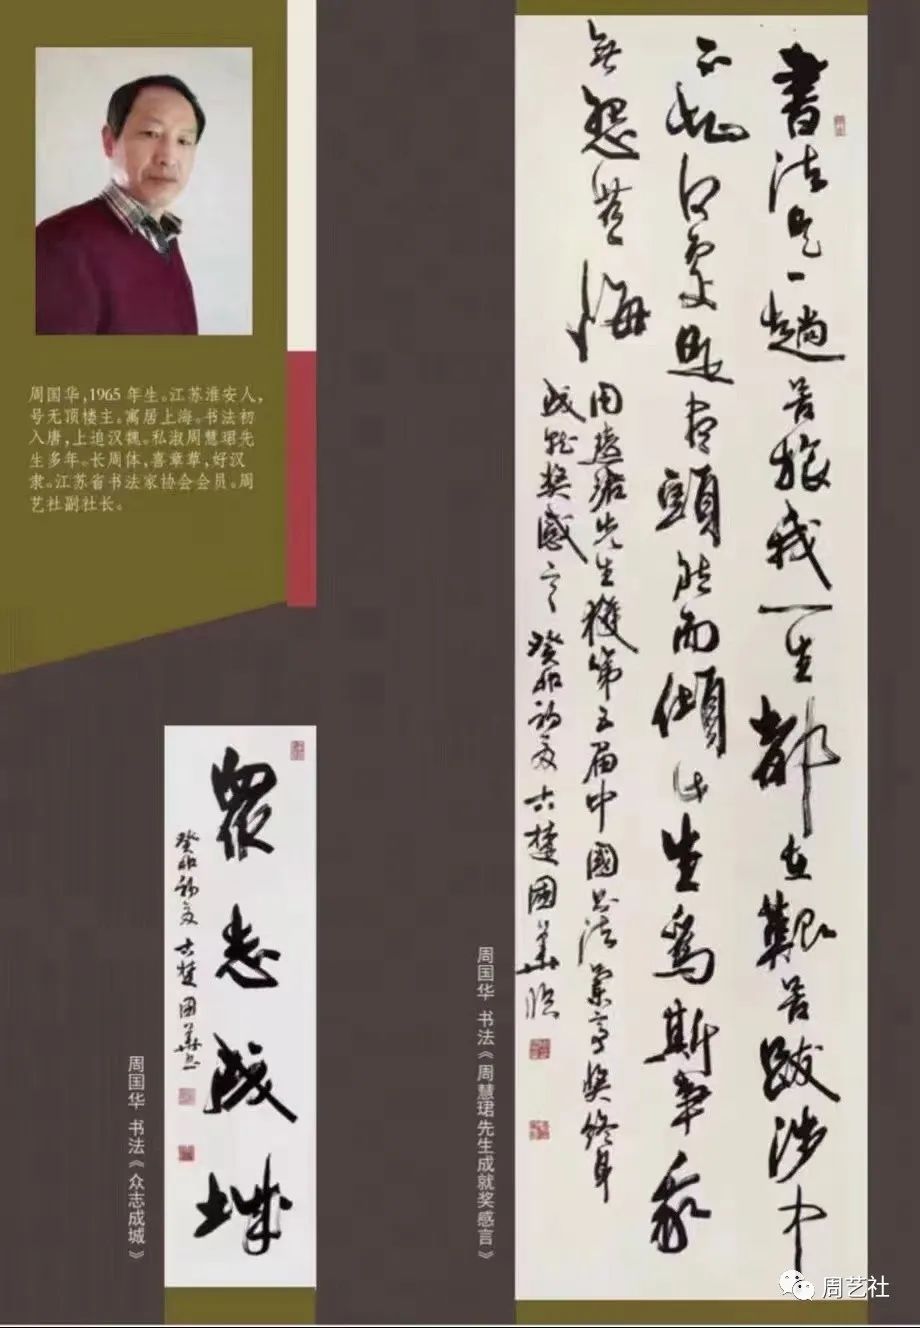 周国华,1965 年生。江苏淮安人,
号无顶楼主。寓居上海。书法初
入唐,上追汉魏。私淑周慧珺先
生多年。长周体,喜章草,好汉
隶。江苏省书法家协会会员。周
艺社副社长。
書法是一趟苦旅我一生都在艱苦跋涉中
不知何處是尽頭然而傾此生爲斯事我
無怨無悔
周慧珺先生獲第五届中國书法蘭亭奖終身
成就奖感言 癸卯初夏古楚國華临
周国华 书法《周慧珺先生成就奖感言》
眾志成城
癸卯初夏 古楚國華书
周国华 书法《众志成城》
周艺社